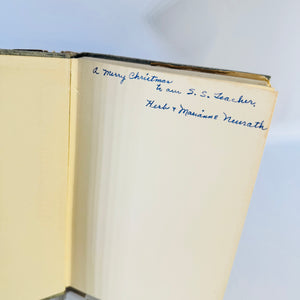 A Merry Christmas
to our S. S. Teacher,
Herb & Marianne Neurath